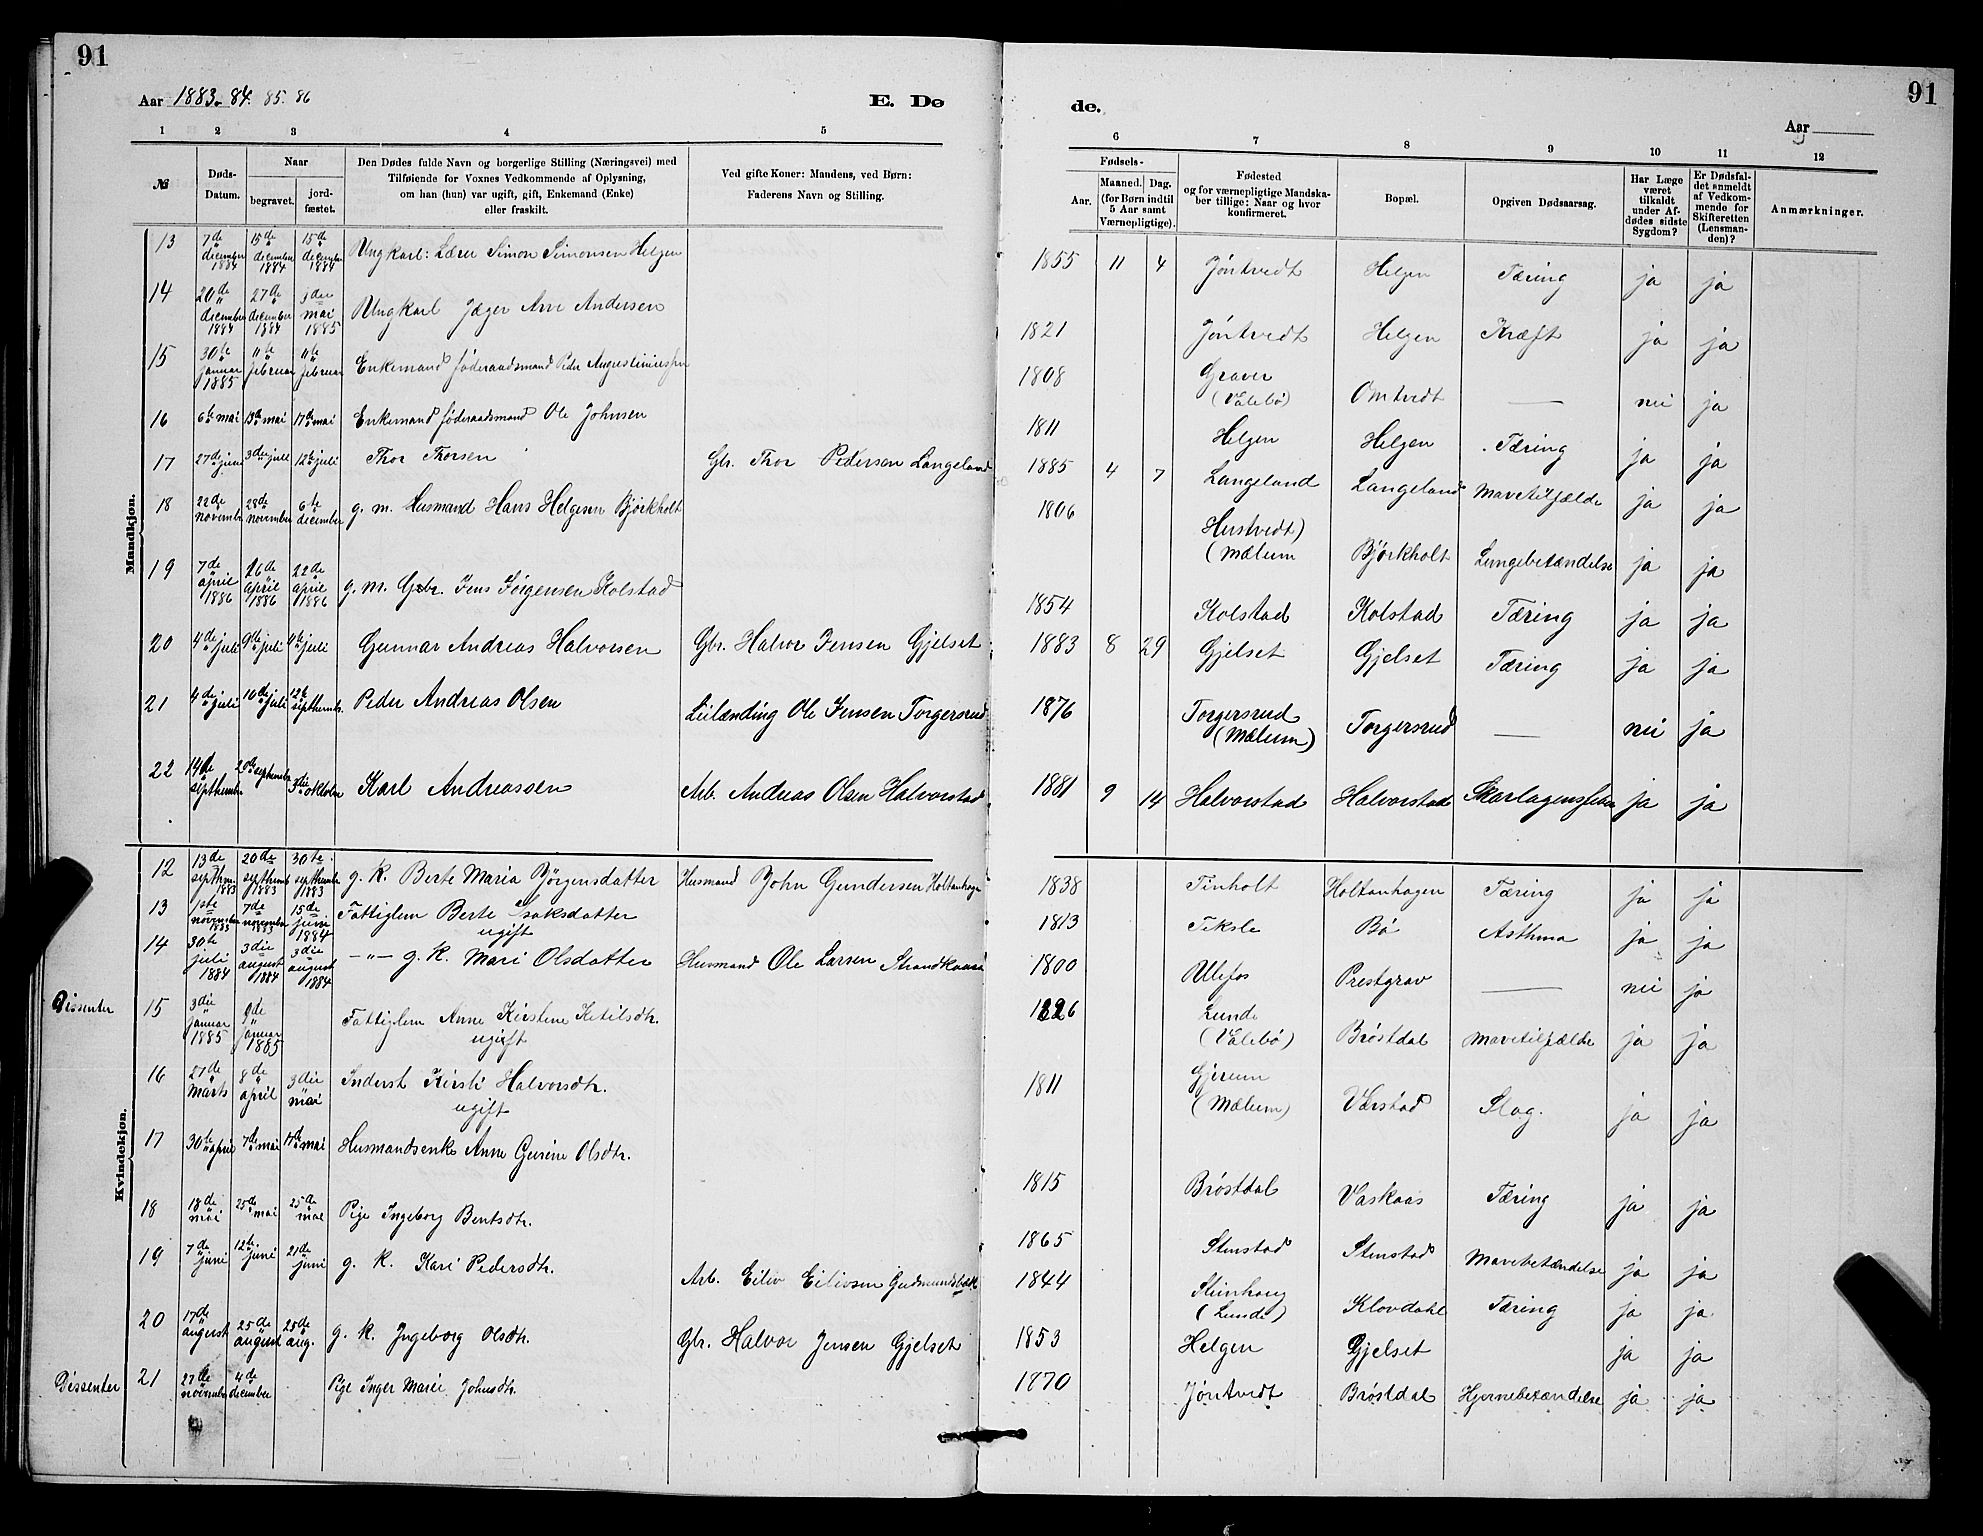 91
91
Aar 1883. 84. 85. 86
E. Dø
de.
Aar
1 2 3 4 5 6 7 8 9 10 11 12
№
Døds-Datum.
Naar
begravet.
jord-fæstet.
Den Dødes fulde Navn og borgerlige Stilling (Næringsvei) med
Tilføiende for Voxnes Vedkommende af Oplysning,
om han (hun) var ugift, gift, Enkemand (Enke)
eller fraskilt.
Ved gifte Koner: Mandens, ved Børn:
Faderens Navn og Stilling.
Fødsels-
Aar.
Maaned.
Dag.
(for Børn indtil
5 Aar samt
Værnepligtige).
Fødested
og for værnepligtige Mandska-
ber tillige: Naar og hvor
konfirmeret.
Bopæl.
Opgiven Dødsaarsag.
Har Læge
været
tilkaldt
under Af-
dødes sidste
Sygdom?
Er Dødsfal-
det anmeldt
af Vedkom-
mende for
Skifteretten
(Lensman-
den)?
Anmærkninger.
Mandkjøn.
13 7de december 1884 15de december 1884 15de december 1884 Ungkarl: Lærer Simon Simonsen Helgen 1855 11 4 Jøntvedt Helgen Tæring ja ja
14 20de december 1884 27de december 1884 3die mai 1885 Ungkarl Jæger Arne Andersen 1821 Jøntvedt Helgen Kræft ja ja
15 30te januar 1885 11te februar 11te februar Enkemand føderaadsmand Peder Augustinussen 1808 Graver (Valebø) Omtvedt — nei ja
16 6te mai 13de mai 17de mai Enkemand føderaadsmand Ole Johnsen 1811 Helgen Helgen Tæring ja ja
17 27de juni 3die juli 12te juli Thor Thorsen Gbr. Thor Pedersen Langeland 1885 4 7 Langeland Langeland Mavetilfælde ja ja
18 22de november 28de november 6te december g. m. Husmand Hans Helgesen Bjørkholt 1806 Hustvedt) (Mælum Bjørkholt Lungebetændelse ja ja
19 7de april 1886 16de april 1886 22de april 1886 g. m. Gbr. Jens Jørgensen Kolstad 1854 Kolstad Kolstad Tæring ja ja
20 4de juli 9de juli 4de juli Gunnar Andreas Halvorsen Gbr. Halvor Jensen Gjelset 1883 8 29 Gjelset Gjelset Tæring ja ja
21 4de juli 10de juli 12te septhembr. Peder Andreas Olsen Leilænding Ole Jensen Torgersrud 1876 Torgersrud (Mælum) Torgersrud — nei ja
22 14de septhembr 20de septembr 3die oktober Karl Andreassen Arb. Andreas Olsen Halvorstad 1881 9 14 Halvorstad Halvorstad Skarlagensfeber ja ja
Kvindekjøn.
12 13de septhm. 1883 20de septhemb 1883 30te septhembr 1883 g. k. Berte Maria Jørgensdatter Husmand John Gundersen Holtanhage 1838 Tinholt Holtanhagen Tæring ja ja
13 1ste november 1883 7de november 1883 15de juni 1884 Fattiglem Berte Isaksdatter ugift 1813 Teksle Bø Asthma ja ja
14 30te juli 1884 3die august 1884 3die august 1884 —"— g. k. Mari Olsdatter Husmand Ole Larsen 1800 Ulefos Prestgrav — nei ja
Dissenter 15 3die januar 1885 9de januar 1885 Fattiglem Anne Kirstine Ketilsdtr. ugift 1826 Lunde (Valebø) Brøstdal Mavetilfælde ja ja
16 27de Marts 8de april 3die mai Inderst Kirsti Halvorsdtr. ugift 1811 Gjerum (Mælum) Varstad Slag. ja ja
17 30te april 7de mai 17de mai Husmandsenke Anne Gurine Olsdtr. 1815 Brøstdal Vaskaas Tæring ja ja
18 18de mai 25de mai 25de mai Pige Ingeborg Bentsdtr. 1865 Stenstad Stenstad Mavebetændelse ja ja
19 7de juni 12te juni 21de juni g. k. Kari Pedersdtr. Arb. Eiliv Eilivsen Gudmundsbæk 1844 Steinhaug (Lunde) Klovdahl Tæring ja ja
20 17de august 25de august 25de aug. g. k. Ingeborg Olsdtr. Gbr. Halvor Jensen Gjelset 1853 Helgen Gjelset ja ja
Dissenter 21 27de november 4de december Pige Inger Marie Johnsdtr. 1870 Jøntvedt Brøstdal Hjernebetændelse ja ja